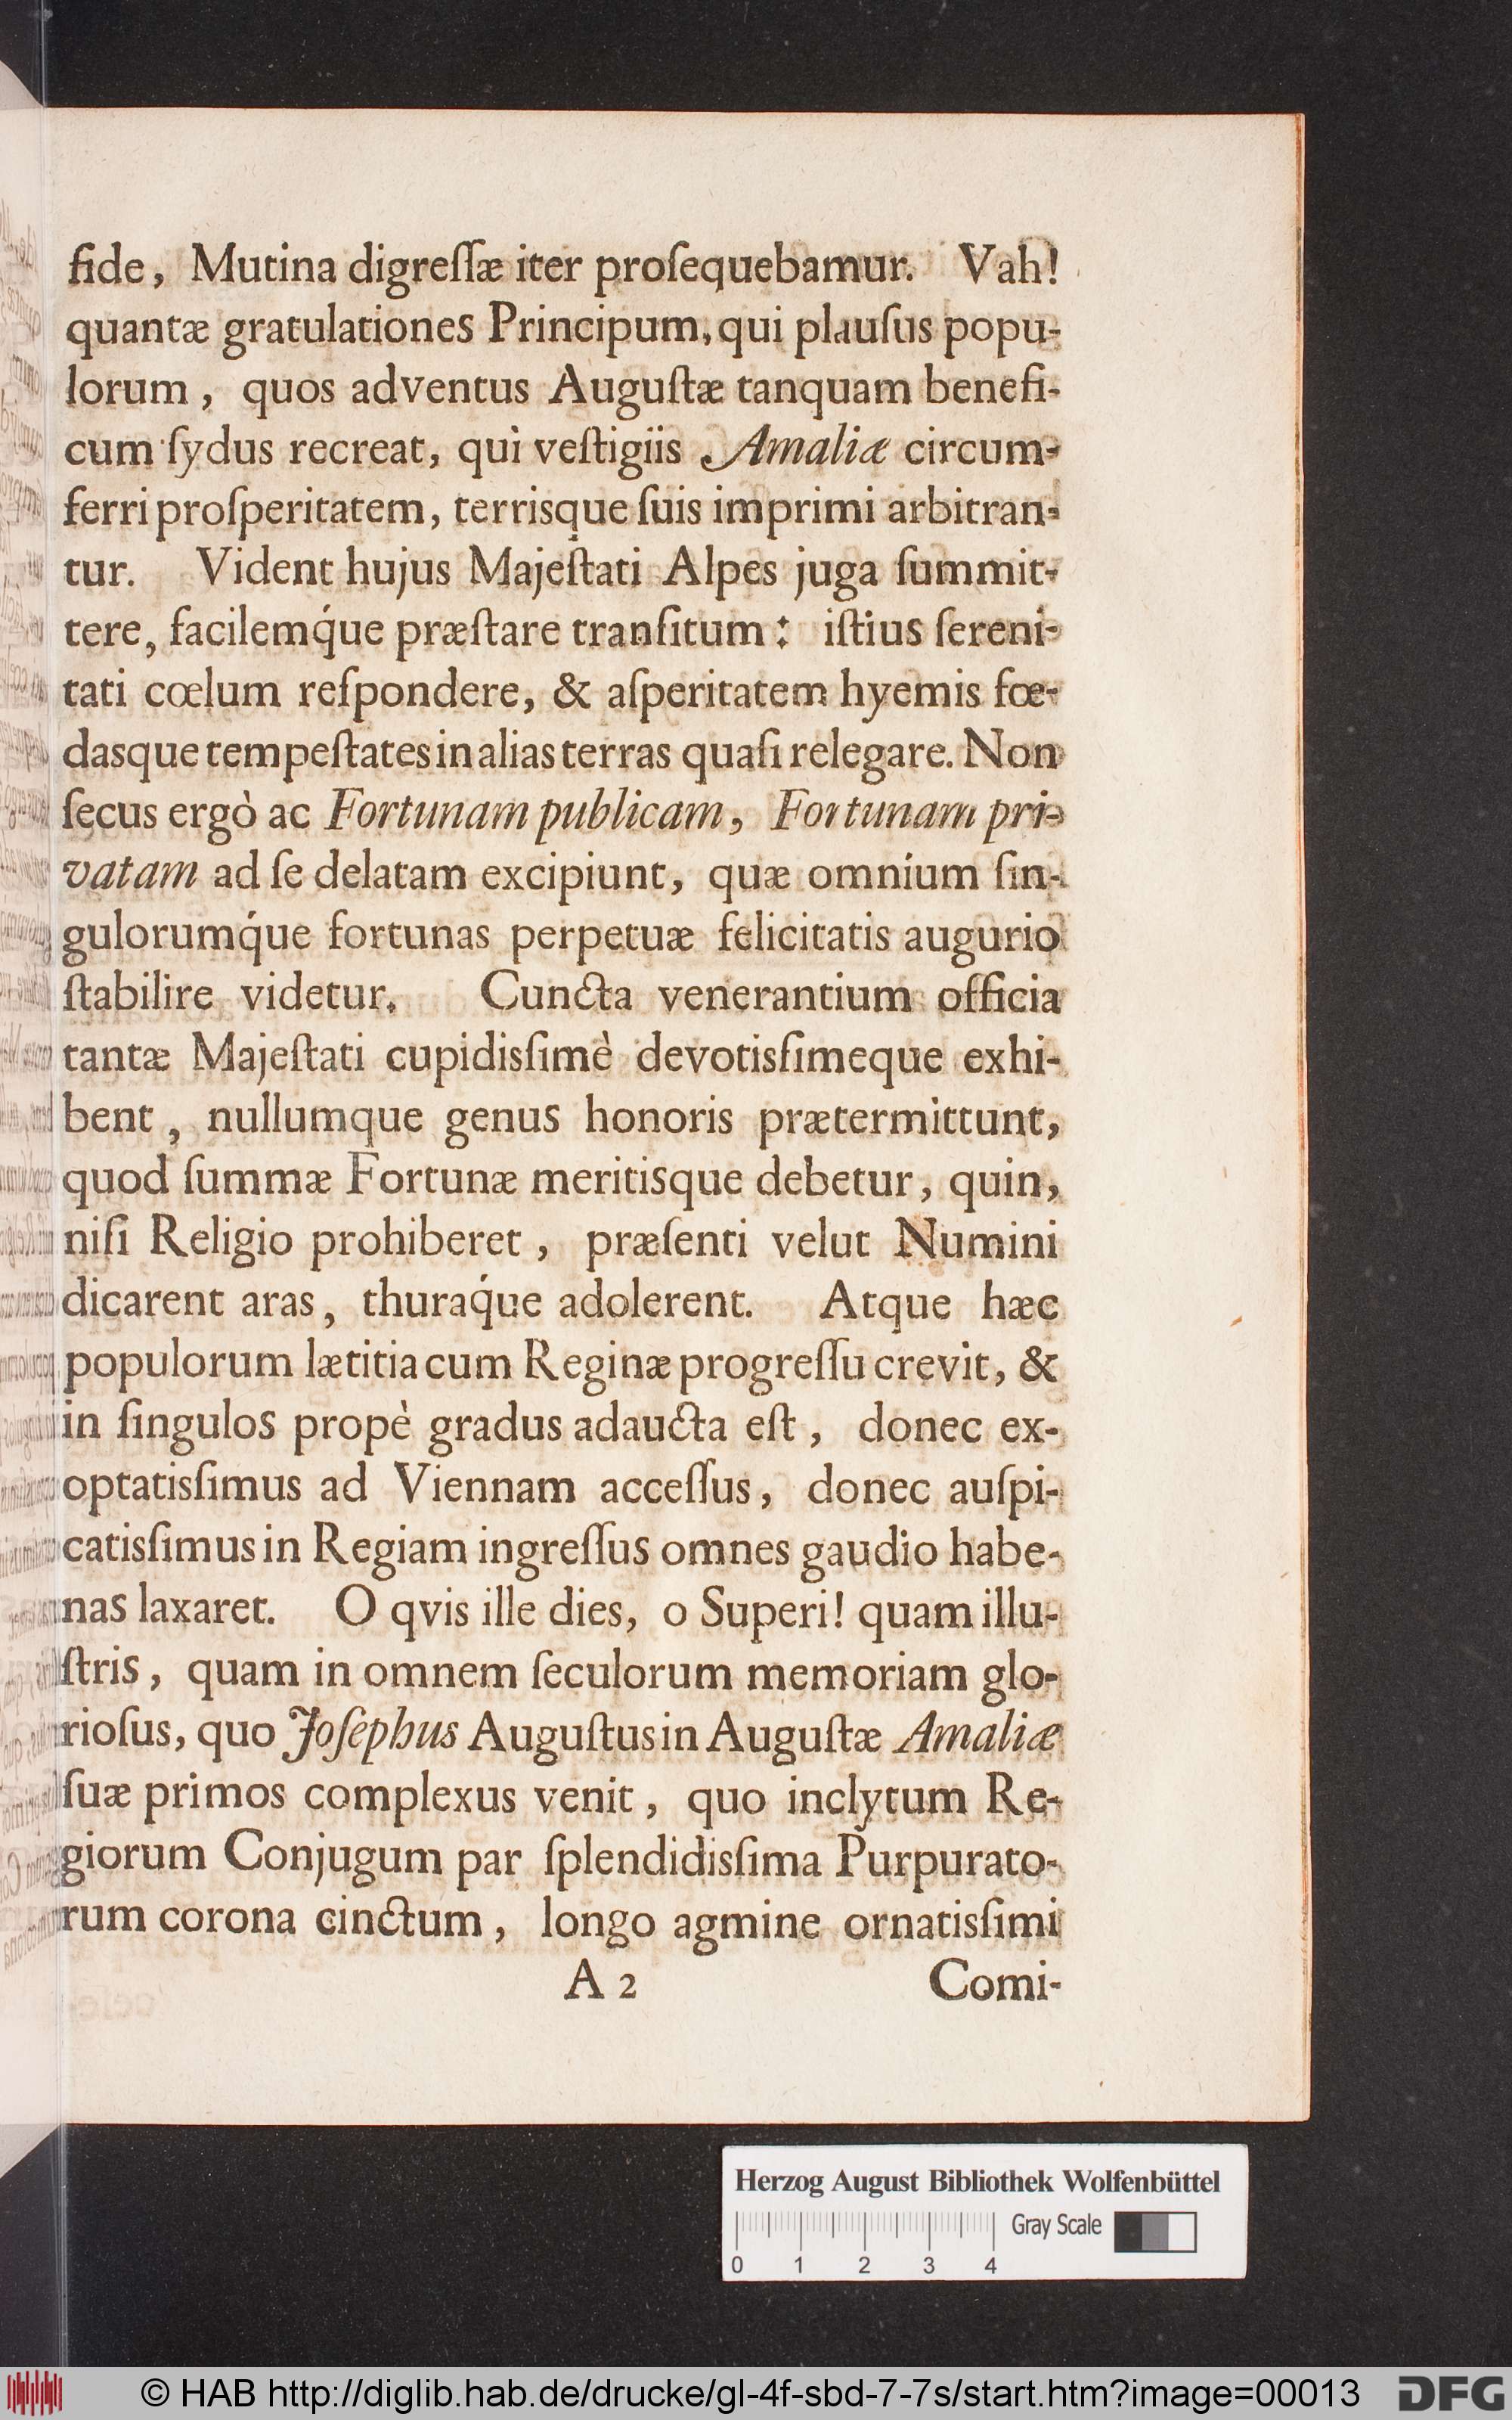 fide, Mutina digreſſæ iter proſequebamur. Vah!
quantæ gratulationes Principum, qui plauſus popu-
lorum, quos adventus Auguſtæ tanquam benefi-
cum ſydus recreat, qui veſtigiis Amaliæ circum-
ferri proſperitatem, terrisque ſuis imprimi arbitran-
tur. Vident hujus Majeſtati Alpes juga ſummit-
tere, facilemq́ue præſtare tranſitum: iſtius ſereni-
tati cœlum reſpondere, & aſperitatem hyemis fœ-
dasque tempeſtates in alias terras quaſi relegare. Non
ſecus ergò ac Fortunam publicam, Fortunam pri-
vatam ad ſe delatam excipiunt, quæ omnium ſin-
gulorumq́ue fortunas perpetuæ felicitatis augurio
ſtabilire videtur. Cuncta venerantium officia
tantæ Majeſtati cupidisſimè devotisſimeque exhi-
bent, nullumque genus honoris prætermittunt,
quod ſummæ Fortunæ meritisque debetur, quin,
niſi Religio prohiberet, præſenti velut Numini
dicarent aras, thuraq́ue adolerent. Atque hæc
populorum lætitia cum Reginæ progreſſu crevit, &
in ſingulos propè gradus adaucta eſt, donec ex-
optatisſimus ad Viennam acceſſus, donec auſpi-
catisſimus in Regiam ingreſſus omnes gaudio habe-
nas laxaret. O qvis ille dies, o Superi! quam illu-
ſtris, quam in omnem ſeculorum memoriam glo-
rioſus, quo Joſephus Auguſtus in Auguſtæ Amaliæ
ſuæ primos complexus venit, quo inclytum Re-
giorum Conjugum par ſplendidisſima Purpurato-
rum corona cinctum, longo agmine ornatisſimi
A 2 Comi-
Herzog August Bibliothek Wolfenbüttel
Gray Scale
0 1 2 3 4
© HAB http://diglib.hab.de/drucke/gl-4f-sbd-7-7s/start.htm?image=00013
DFG